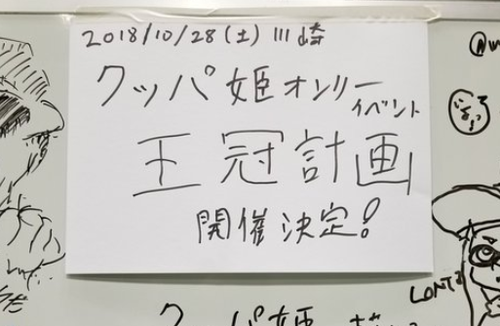 2018/10/28(土)川崎
クッパ姫オンリー
イベント
王冠計画
開催決定!
クッパ姫
LONT